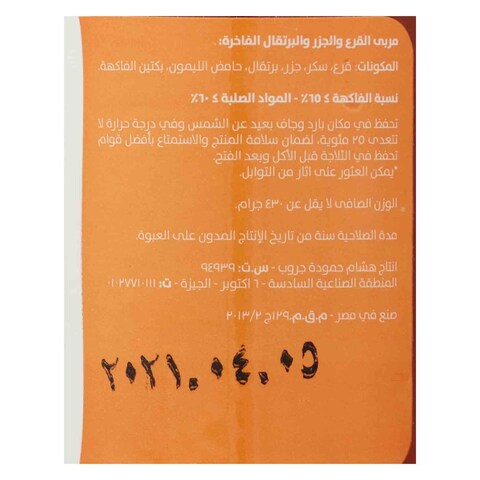 مربى القرع والجزر والبرتقال الفاخرة:
المكونات: قرع، سكر، جزر، برتقال، حامض الليمون، بكتين الفاكهة.
نسبة الفاكهة ≥ ٦٥٪ - المواد الصلبة ≥ ٦٠٪
تحفظ في مكان بارد وجاف بعيد عن الشمس وفي درجة حرارة لا
تتعدى ٢٥ مئوية، لضمان سلامة المنتج والاستمتاع بأفضل قوام
تحفظ في الثلاجة قبل الأكل وبعد الفتح.
*يمكن العثور على اثار من التوابل.
الوزن الصافى لا يقل عن ٤٣٠ جرام.
مدة الصلاحية سنة من تاريخ الإنتاج المدون على العبوة.
انتاج هشام حمودة جروب - س.ت: ٩٤٩٣٩
المنطقة الصناعية السادسة - ٦ اكتوبر - الجيزة - ت: ٠١٠٢٧٧١٠١١١
صنع في مصر - م.ق.م.١٢٩ج ٢٠١٣/٢
٢٠٢١.٠٤.٠٥